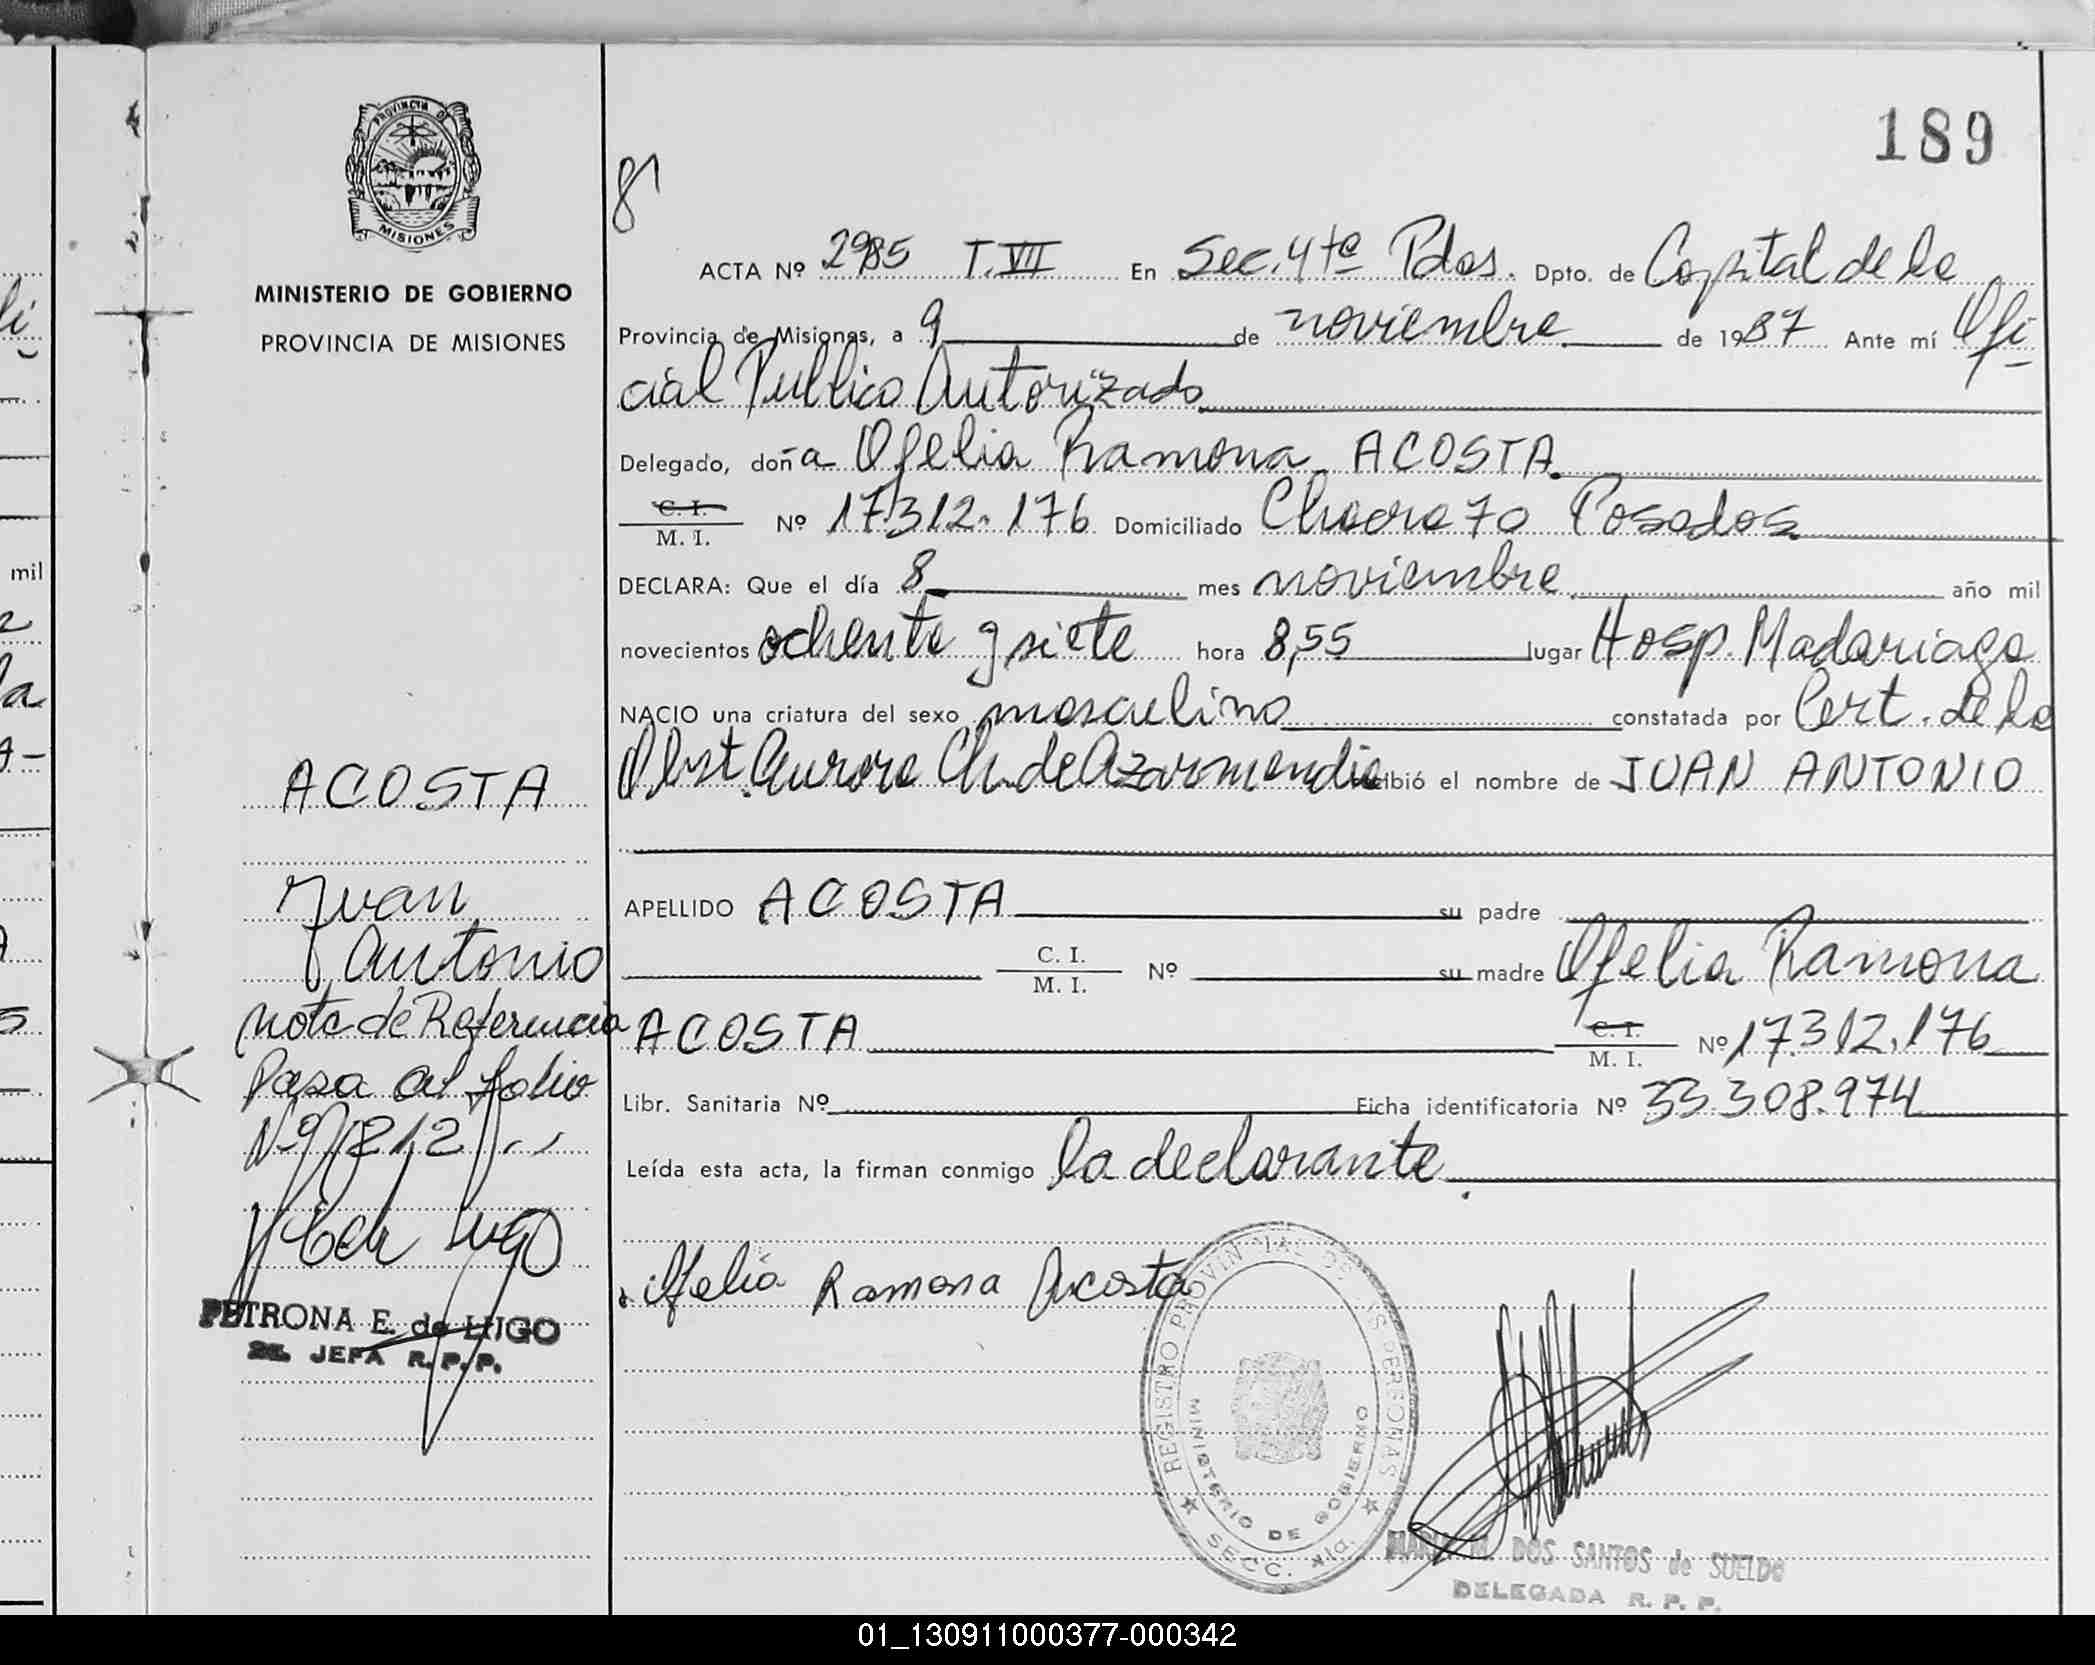 189
PROVINCIA DE
MISIONES
MINISTERIO DE GOBIERNO
PROVINCIA DE MISIONES
ACTA Nº 2985 T. VII En Sec. 4ta Pdas. Dpto. de Capital de la
Provincia de Misiones, a 9 de noviembre de 1987 Ante mí Ofi
cial Publico Autorizado
Delegado, doña Ofelia Ramona ACOSTA
C. I.
M. I. Nº 17.312.176 Domiciliado Chacra 70 Posadas
DECLARA: Que el día 8 mes noviembre año mil
novecientos ochenta y siete hora 8,55 lugar Hosp. Madariaga
NACIO una criatura del sexo masculino constatada por Cert. de la
Obst. Aurora Ch. de Azarmendia cibió el nombre de JUAN ANTONIO
APELLIDO ACOSTA su padre
C. I.
M. I. Nº su madre Ofelia Ramona
ACOSTA C. I.
M. I. Nº 17.312.176
Libr. Sanitaria Nº Ficha identificatoria Nº 33.308.974
Leída esta acta, la firman conmigo la declarante
Ofelia Ramona Acosta
ACOSTA
Juan
Antonio
Nota de Referencia
Pasa al folio
Nº 212
PETRONA E. de LUGO
JEFA R. P. P.
REGISTRO PROVINCIAL DE LAS PERSONAS
MINISTERIO DE GOBIERNO
SECC. 4ta.
M. DOS SANTOS de SUELDO
DELEGADA R. P. P.
mil
01_130911000377-000342